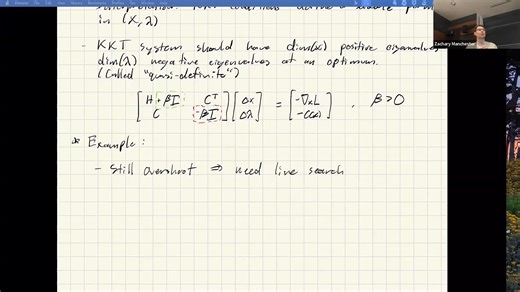 in (x, λ)
- KKT system should have dim(x) positive eigenvalues
dim(λ) negative eigenvalues at an optimum.
(Called "quasi-definite")
[H + βI Cᵀ; C -βI] [Δx; Δλ] = [-∇ₓL; -C(x)] , β > 0
* Example:
- Still overshoot ⇒ need line search
Zachary Manchester